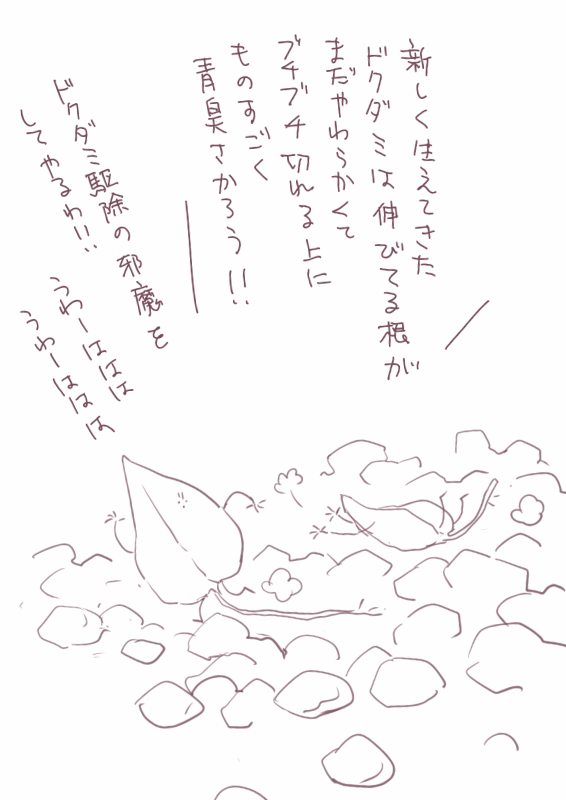 新しく生えてきた
ドクダミは伸びてる根が
まだやわらかくて
ブチブチ切れる上に
ものすごく
青臭さかろう!!
ドクダミ駆除の邪魔を
してやるわ!!
うわーははは
うわーははは